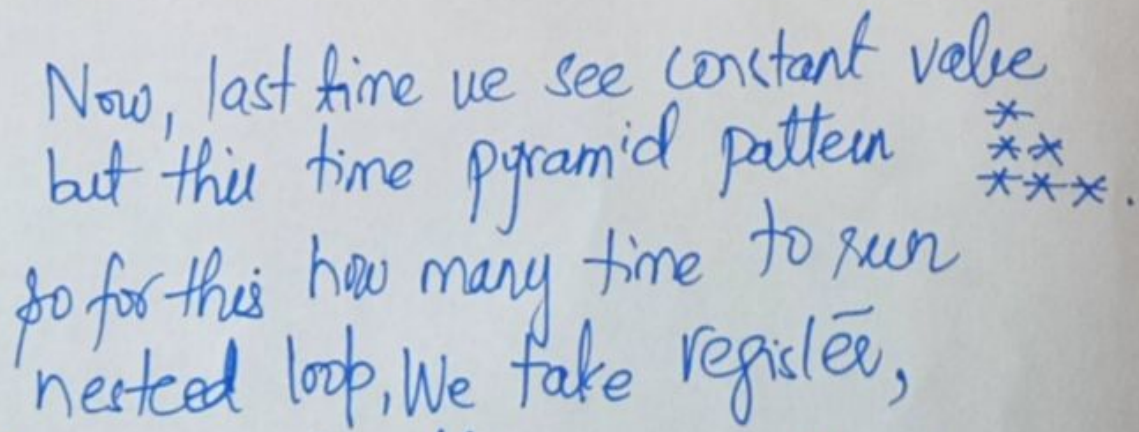 Now, last time we see constant value *
but this time pyramid pattern **
***.
so for this how many time to run
nested loop, We take register,